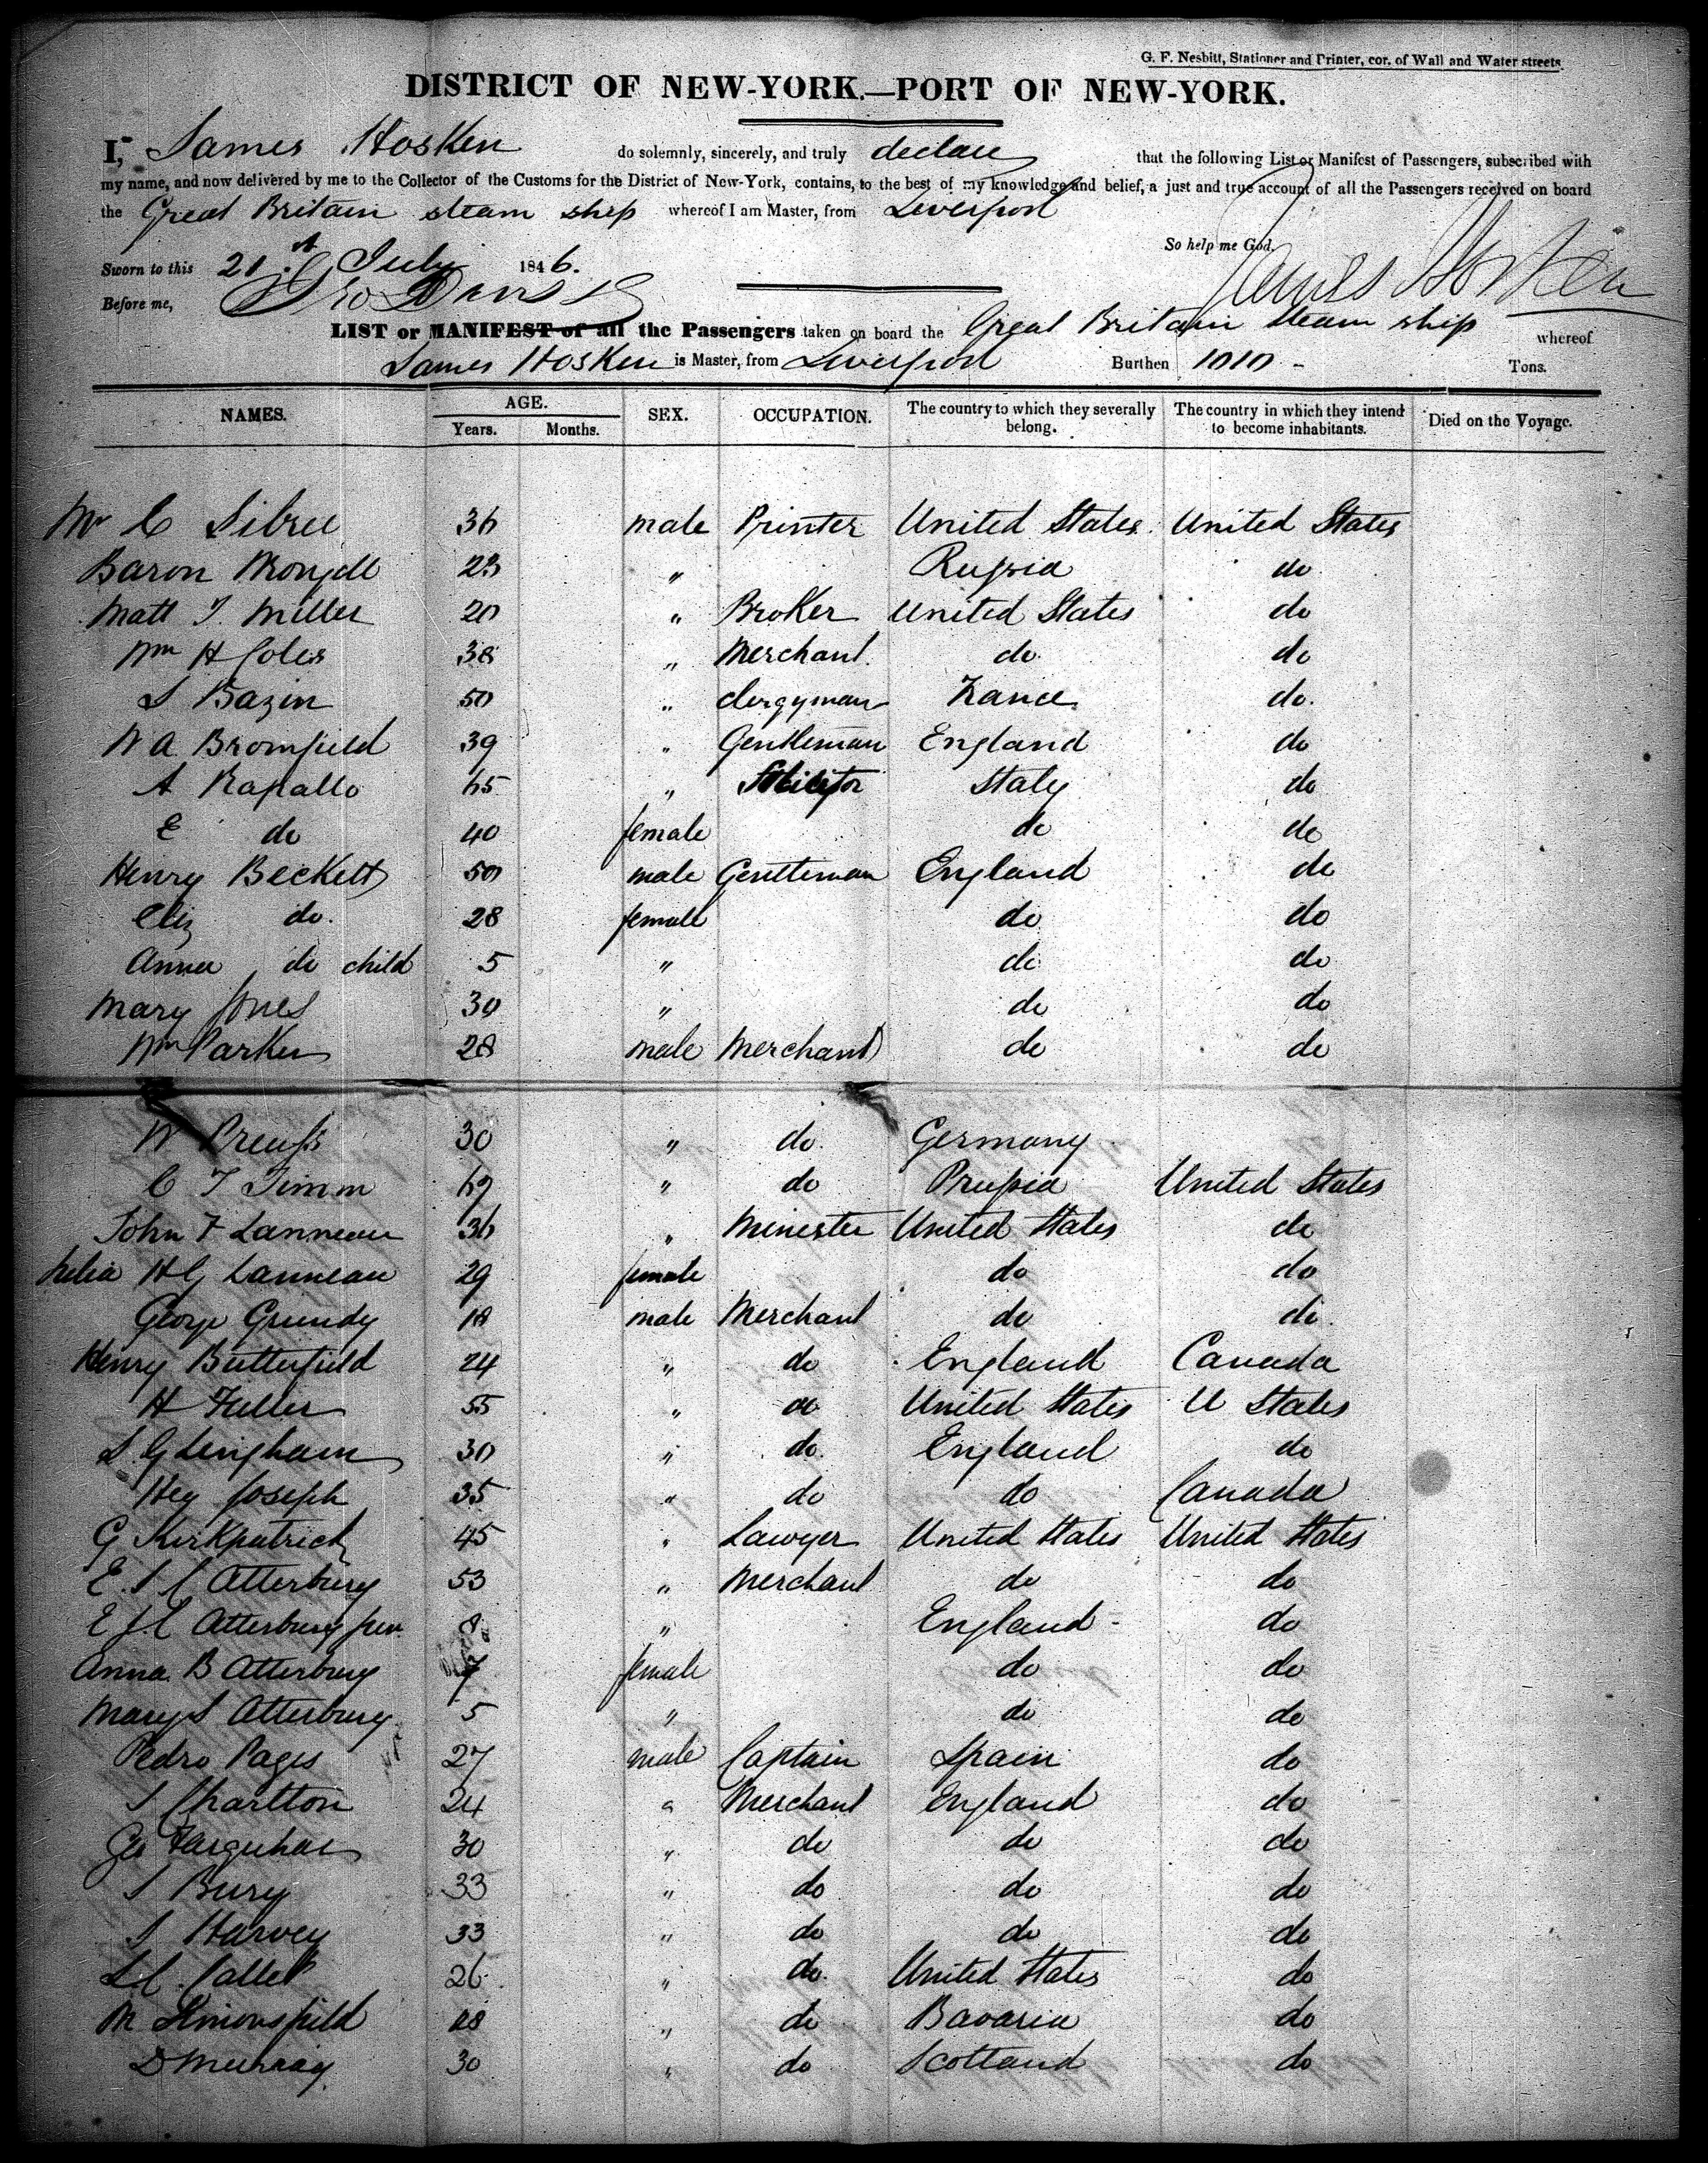 G. F. Nesbitt, Stationer and Printer, cor. of Wall and Water streets.
DISTRICT OF NEW-YORK.—PORT OF NEW-YORK.
I, James Hosken do solemnly, sincerely, and truly declare that the following List or Manifest of Passengers, subscribed with
my name, and now delivered by me to the Collector of the Customs for the District of New-York, contains, to the best of my knowledge and belief, a just and true account of all the Passengers received on board
the Great Britain steam ship whereof I am Master, from Liverpool
So help me God,
Sworn to this 21st July 1846. James Hosken
Before me, Davis
LIST or MANIFEST of all the Passengers taken on board the Great Britain steam ship whereof
James Hosken is Master, from Liverpool Burthen 1010 - Tons.
NAMES. AGE. Years. Months. SEX. OCCUPATION. The country to which they severally belong. The country in which they intend to become inhabitants. Died on the Voyage.
Mr C Sibree 36 male Printer United States United States
Baron 23 " Russia do
Matt T. Miller 20 " Broker United States do
Wm H Coles 38 " Merchant do do
S Bazin 50 " Clergyman France do.
W A Bromfield 39 " Gentleman England do
A Rapallo 65 " Solicitor Italy do
E do 40 female do do
Henry Beckett 50 male Gentleman England do
Eliz do. 28 female do do
Anna do child 5 " do do
Mary Jones 30 " do do
Wm Parker 28 male Merchant do do
W Preuss 30 " do. Germany
C F Timm 69 " do Prussia United States
John F Lanneau 36 " Minister United States do
Julia H G Lanneau 29 female do do
George Grundy 18 male Merchant do do.
Henry Butterfield 24 " do England Canada
H Fuller 55 " do United States U States
S Gdingham 30 " do. England do
Hey Joseph 35 " do do Canada
G Kirkpatrick 45 " Lawyer United States United States
E. J C Atterbury 53 " Merchant do do
E J C Atterbury jun. 8 " England - do
Anna B Atterbury 7 female do do
Mary S Atterbury 5 " do do
Pedro Pages 27 male Captain Spain do
J Charlton 24 " Merchant England do
Geo Farquhar 30 " do do do
J Bury 33 " do do do
J Harvey 33 " do do do
26 " do. United States do
M Simonsfield 28 " do Bavaria do
D Murray 30 " do Scotland do